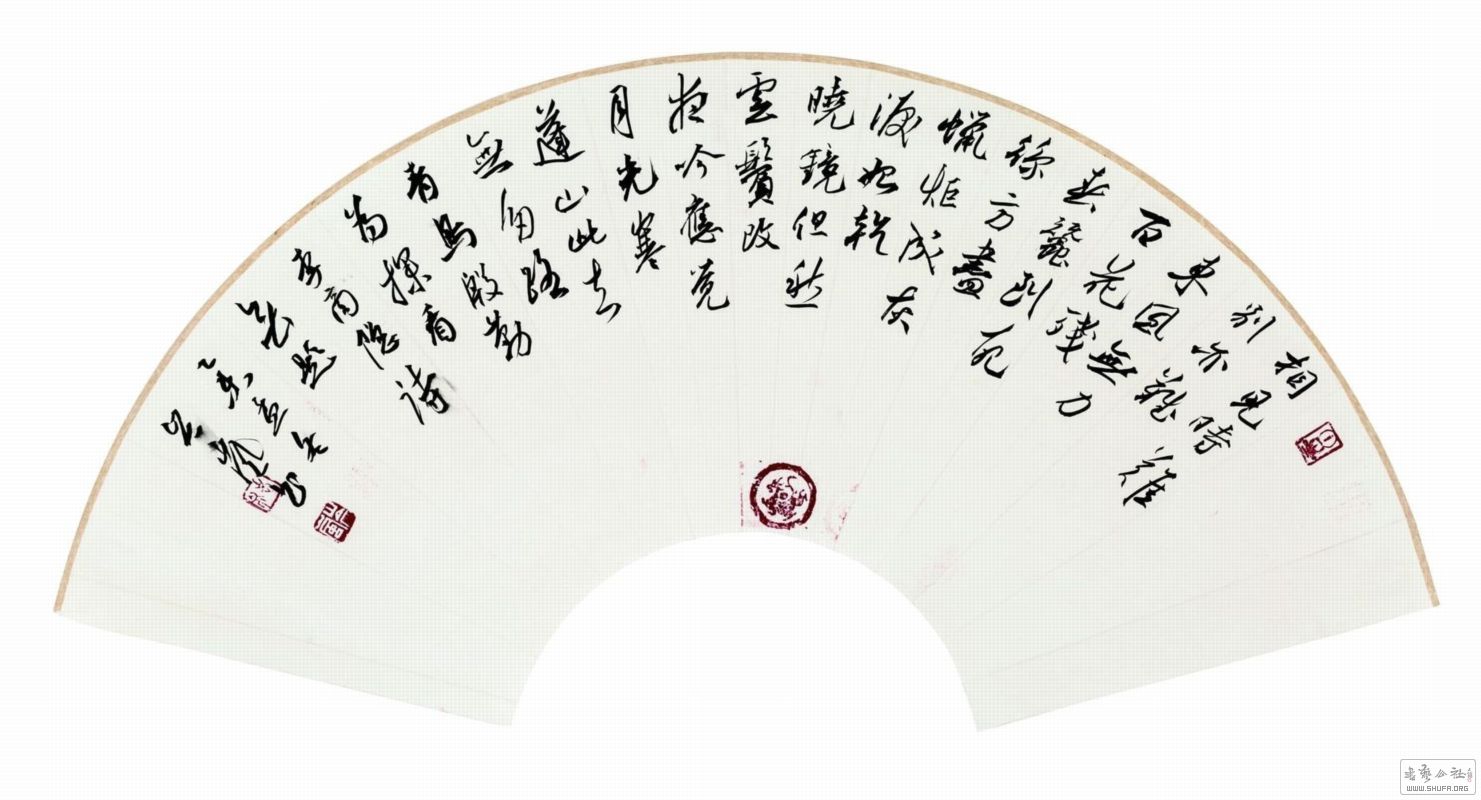 相見時難
別亦難
東風無力
百花殘
春蠶到死
絲方盡
蠟炬成灰
淚始乾
曉鏡但愁
雲鬢改
夜吟應覺
月光寒
蓬山此去
無多路
青鳥殷勤
為探看
李商隱詩
無題
書藝公社
WWW.SHUFA.ORG